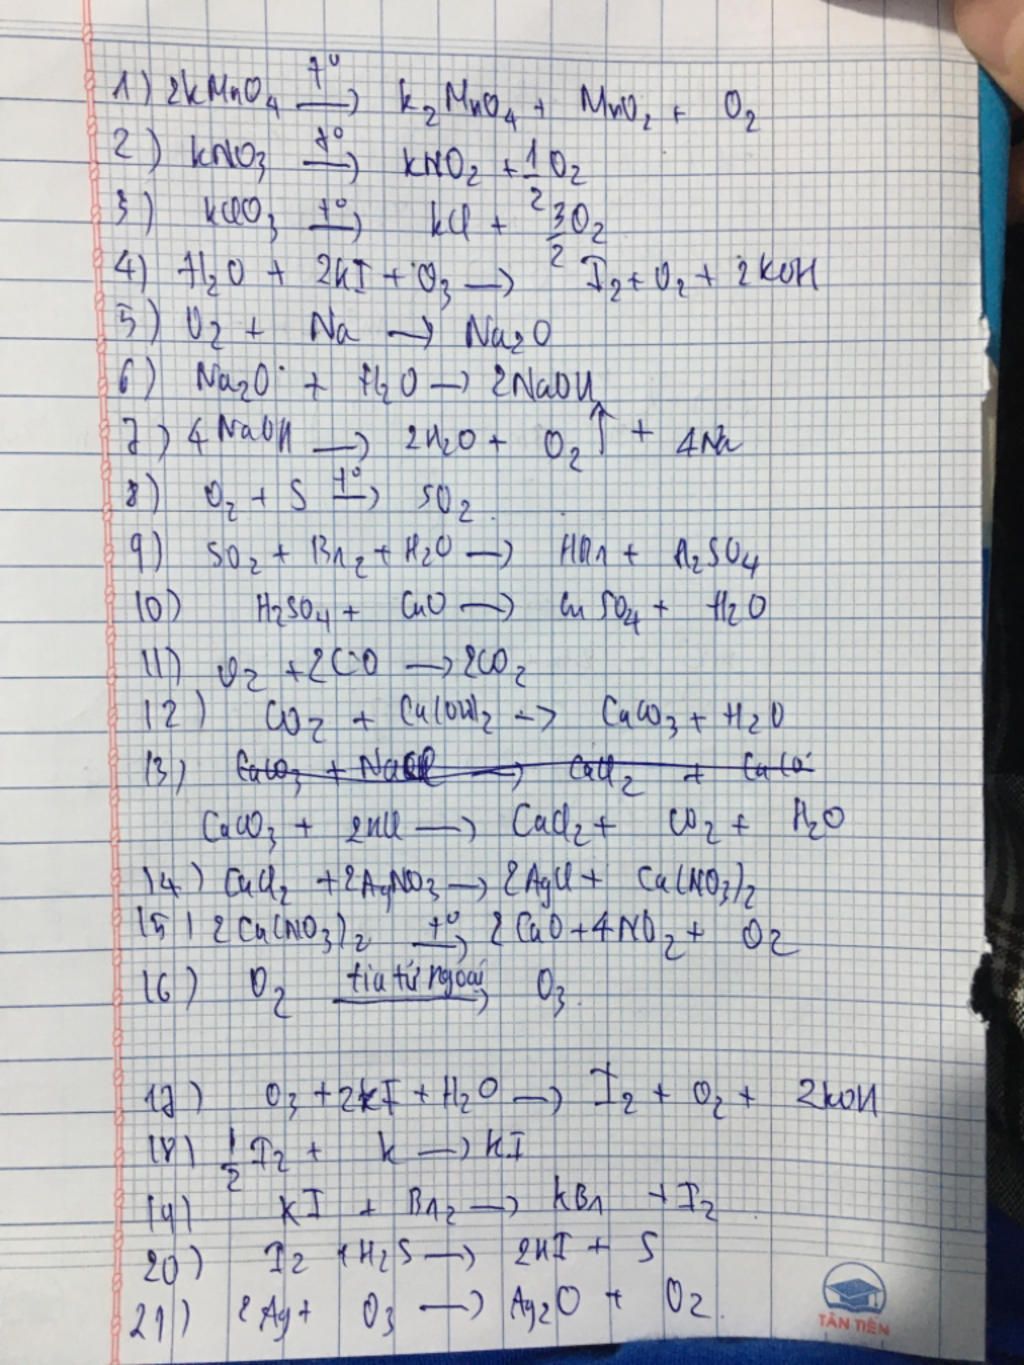 1) 2kMnO4 t° → k2MnO4 + MnO2 + O2
2) kNO3 t° → kNO2 + 1/2 O2
3) kClO3 t° → kCl + 3/2 O2
4) H2O + 2kI + O3 → I2 + O2 + 2kOH
5) O2 + Na → Na2O
6) Na2O + H2O → 2NaOH
7) 4NaOH → 2H2O + O2↑ + 4Na
8) O2 + S t° → SO2
9) SO2 + Br2 + H2O → HBr + H2SO4
10) H2SO4 + CuO → CuSO4 + H2O
11) O2 + 2CO → 2CO2
12) CO2 + Ca(OH)2 → CaCO3 + H2O
13) CaCO3 + → CaCl2 +
CaCO3 + 2HCl → CaCl2 + CO2 + H2O
14) CaCl2 + 2AgNO3 → 2AgCl + Ca(NO3)2
15) 2Ca(NO3)2 t° → 2CaO + 4NO2 + O2
16) O2 tia tử ngoại → O3
17) O3 + 2kI + H2O → I2 + O2 + 2kOH
18) 1/2 I2 + k → kI
19) kI + Br2 → kBr + I2
20) I2 + H2S → 2HI + S
21) 2Ag + O3 → Ag2O + O2
TÂN TIẾN